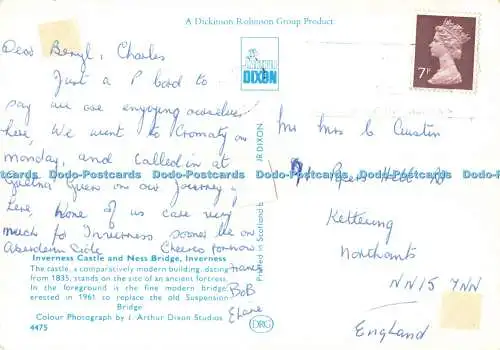 A Dickinson Robinson Group Product
Dear Beryl, Charles
Just a P Card to
say we are enjoying ourselves
here, We went to Cromaty on
monday, and called in at
Gretna Green on our Journey
here, None of us care very
much for Inverness sooner be on
Aberdeen Side Cheers for now
ARTHUR
DIXON
Printed in Scotland J R DIXON
7P
Mr Mrs C Austin
Kettering
Northants
NN15
England
Dodo-Postcards Dodo-Postcards Dodo-Postcards Dodo-Postcards Dodo-Postcards Dodo-Postcards
Inverness Castle and Ness Bridge, Inverness
The castle, a comparatively modern building, dating
from 1835, stands on the site of an ancient fortress.
In the foreground is the fine modern bridge
erected in 1961 to replace the old Suspension
Bridge
Colour Photograph by J. Arthur Dixon Studios
4475
BoB
DRG